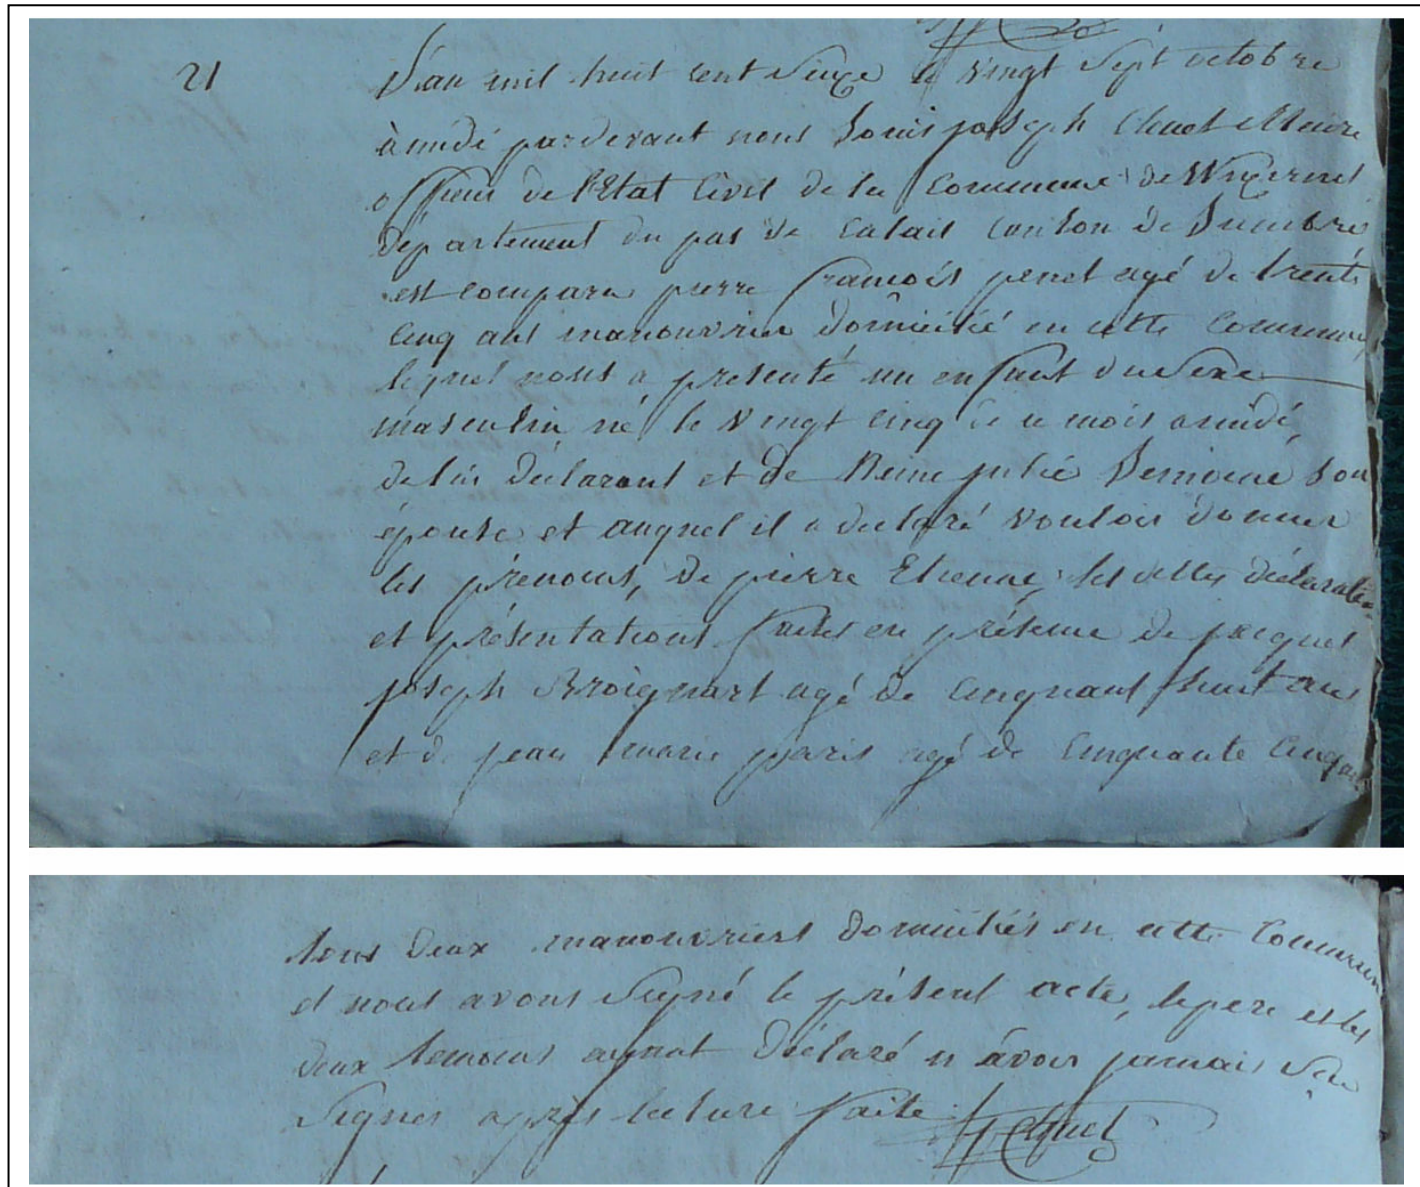 21
L'an mil huit cent seize le vingt sept octobre
à midi pardevant nous Louis joseph Clenet Maire
officier de l'Etat Civil de la Commune de Wizernes
departement du pas de Calais Canton de Lumbre
est comparu pierre francois penet agé de trente
cinq ans manouvrier domicilié en cette Commune
lequel nous a presenté un enfant du sexe
masculin né le vingt cinq de ce mois a midi
de lui déclarant et de Reine julie son
épouse et auquel il a déclaré vouloir donner
les prénoms de pierre Etienne les dittes déclaration
et présentations faites en présence de jacques
joseph Broignart agé de cinquant huit ans
et de jean marie paris agé de cinquante cinq ans
tous deux manouvriers domiciliés en cette Commune
et nous avons signé le présent acte, le pere et les
deux temoins ayant déclaré n'avoir jamais seu
signer après lecture faite